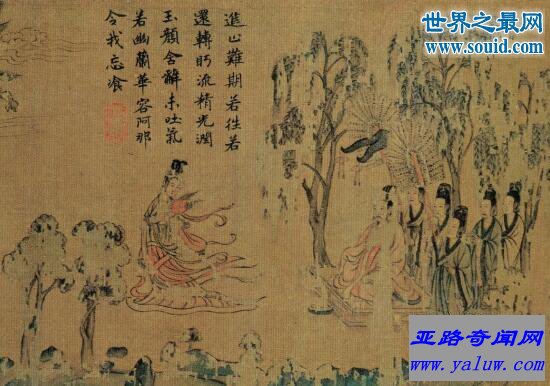 進止難期若往若
還轉眄流精光潤
玉顏含辭未吐氣
若幽蘭華容阿那
令我忘飡
世界之最网
www.souid.com
亚路奇闻网
www.yaluw.com